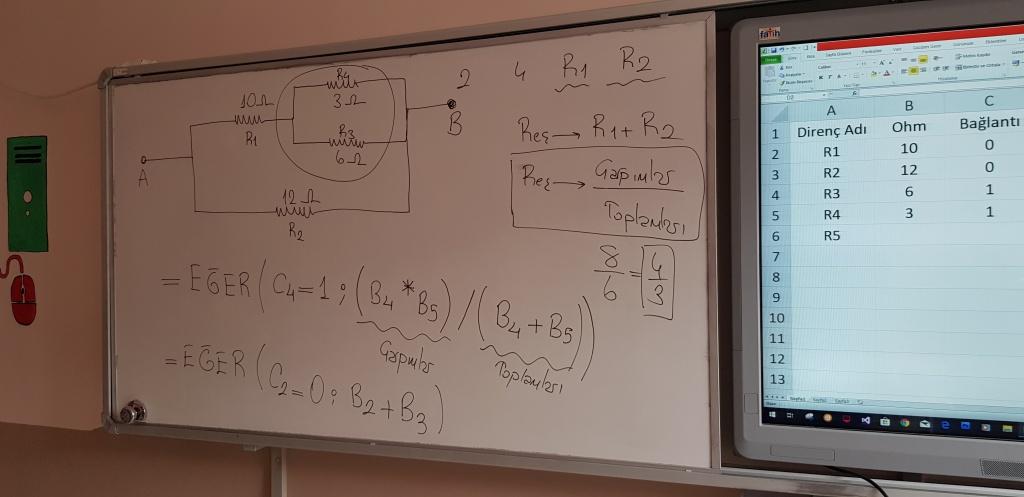 10Ω
R1
R4
3Ω
R3
6Ω
12Ω
R2
A
B
2
4 R1 R2
Reş → R1 + R2
Reş → Çarpımları
Toplamları
8/6 = 4/3
= EĞER(C4=1;(B4*B5)/(B4+B5))
Çarpımlar Toplamları
= EĞER(C2=0; B2+B3)
fatih
A B C
1 Direnç Adı Ohm Bağlantı
2 R1 10 0
3 R2 12 0
4 R3 6 1
5 R4 3 1
6 R5
7
8
9
10
11
12
13